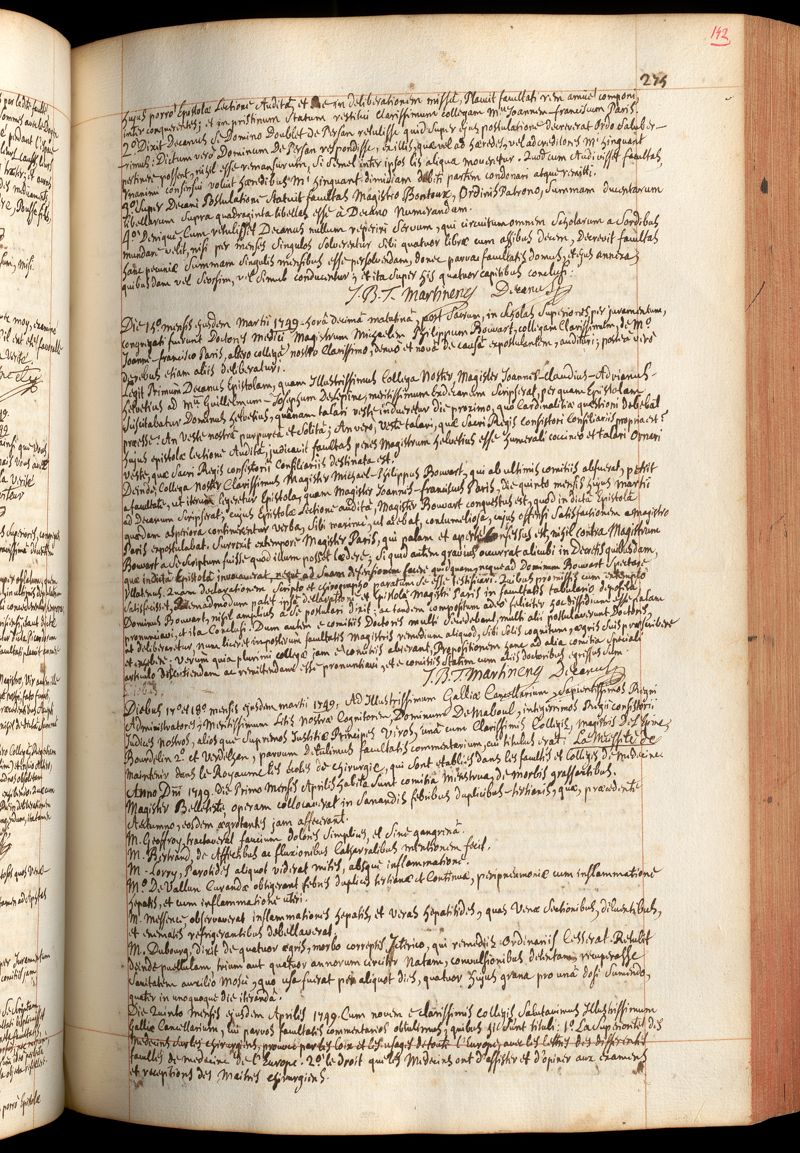 142
275
hujus porrò Epistolæ Lectione Auditâ, et re in deliberationem missâ, Placuit facultati rem amicè componi
inter conquerentes; et in pristinum Statum restitui clarissimum collegam Mm Joannem-franciscum Paris.
2º Dixit Decanus Se Domino Doublet de Persan retulisse quid Super ejus postulatione decreverat Ordo Saluber-
rimus: Dictum vero Dominum De Persan respondisse, ex illis, quæ vel ad hæredes, vel ad creditores Mi hinquant
pertinere possent, nihil esse remansurum, Si Semel inter ipsos lis aliqua moveretur. Quod cum Audivisset facultas,
unanimi consensu voluit hæredibus Mi hinquant dimidiam debiti partem condonari atque remitti.
Super Decani Postulatione Statuit facultas Magistro Bontoux, Ordinis Patrono, Summam ducentarum
libellarum Supra quadraginta libellas esse à Decano Numerandam.
4º Denique Cum retulisset Decanus nullum reperiri Servum, qui circuitum omnem Scholarum a Sordibus
mundare velit, nisi per menses Singulos Solverentur Sibi quatuor libræ cum assibus decem, Decrevit facultas
hanc pecuniæ Summam Singulis mensibus esse persolvendam, donec parvæ facultatis domus, et ejus annexa
quibusdam vel Seorsim, vel Simul conducentur; et ita Super his quatuor capitibus conclusi.
J. B. T. Martinenq Decanus
Die 15º mensis ejusdem Martii 1749 horâ decimâ matutinâ, post Sacrum, in Scholas Superiores per juramentum,
congregati fuerunt Doctores Medici Magistrum Michaelem Philippum Bouvart, collegam Clarissimum, de Mº
Joanne-francisco Paris, altero collegâ nostro Clarissimo, denuò et novâ de causâ expostulantem, audituri; posteà verò
de rebus etiam aliis deliberaturi.
Legit Primùm Decanus Epistolam, quam Illustrissimus Collega Noster, Magister Joannes-Claudius-Adrianus
Helvetius ad Mum Guillelmum-Josephum De L'Epine, meritissimum Exdecanum Scripserat, per quam Epistolam
Suscitabatur Dominus Helvetius, quânam talari veste indueretur die proximo, quo Cardinalitiæ quæstioni debebat
præesse: An veste nostrâ purpureâ et Solitâ; An vero, veste talari, quæ Sacri Regis Consistorii Consiliariis propria est?
hujus epistolæ Lectione Auditâ, judicavit facultas penes Magistrum Helvetius esse humerali coccineo et talari Ornari
veste, quæ Sacri Regis consistorii Consiliariis destinata est.
Deinde Collega noster Clarissimus Magister Michael-Philippus Bouvart, qui ab ultimis comitiis abfuerat, petiit
a facultate, ut iterum Legeretur Epistola, quam Magister Joannes-franciscus Paris, die quinto mensis hujus martii
ad Decanum Scripserat; cujus Epistolæ Lectione auditâ, Magister Bouvart conquestus est, quod in dictâ Epistolâ
quædam asperiora continerentur verba, Sibi maximè, ut aiebat, contumeliosa, cujus offensi Satisfactionem a Magistro
Paris expostulabat. Surrexit extempore Magister Paris, qui palam et apertè confessus est, nihil contra Magistrum
Bouvart a se Scriptum fuisse quod illum posset lædere; Si quid autem gravius occurrat alicubi in Decretis quibusdam,
quæ in dictâ Epistolâ invocaverat, neque ad Suam defensionem facere quidquam, neque ad Dominum Bouvart Spectare
ullatenus. Quam declarationem Scripto et chirographo paratum Se esse testificari. Quibus promissis cum extemplo
Satisfecisset, quemadmodum patet ipsâ descriptione et Epistolâ Magistri Paris in facultatis tabulario depositâ,
Dominus Bouvart, nihil amplius a Se postulari dixit; ac tandem compositum adeò feliciter hoc dissidium esse palam
pronunciavi, et ita Conclusi. Dum autem e comitiis Doctores multi Secedebant, multi alii postulaverunt Doctores,
ut deliberaretur, num liceret in posterum facultatis magistris remedium aliquod, Sibi Solis cognitum, ægris Suis præscribere
et exhibere. Verum quia plurimi collegæ jam e comitiis abierant, Propositionem hanc ad alia comitia Speciali
articulo discutiendam ac remittendam esse pronuntiavi, et e comitiis Statim cum aliis doctoribus egressus Sum.
J. B. T. Martinenq Decanus
Diebus 17º et 19º mensis ejusdem martii 1749. Ad Illustrissimum Galliæ Cancellarium, Sapientissimos Regni
Administratores, Meritissimum Litis nostræ Cognitorem, Dominum De Maboul, integerrimos Regii Consistorii
Judices nostros, aliosque Supremos Justitiæ Principes Viros, unà cum Clarissimis Collegis, magistris De L'Epine,
Bourdelin 2º et Verdelhan, parvum detulimus facultatis commentarium, cui titulus erat: La Nécessité de
maintenir dans le Royaume les écoles de Chirurgie, qui sont etablies dans les facultés et Colleges de medecine
Anno Dni 1749. Die Primo Mensis Aprilis habita Sunt comitia menstrua, de morbis grassantibus.
Magister Belleteste operam collocaverat in Sanandis febribus duplicibus-tertianis, quæ, præcedente
Autumno, eosdem ægrotantes jam affecerant.
M. Geoffroy, tractaverat faucium dolores Simplices, et Sine gangrænâ.
M. Bertrand, de Affectibus ac fluxionibus Catharralibus mentionem fecit.
M. Lorry, Parotides aliquot viderat mites, absque inflammatione.
Mo. De Vallun Curandæ obtigerant febres duplices tertianæ et Continuæ, peripneumoniæ cum inflammatione
hepatis, et cum inflammatione uteri.
M. Messence observaverat inflammationes hepatis, et veras hepatitides, quas Venæ Sectionibus, diluentibus,
et enematis refrigerantibus debellaverat.
M. Dubourg, dixit de quatuor ægris, morbo correptis Icterico, qui remediis Ordinariis Cesserat. Retulit
deinde puellulam trium aut quatuor annorum circiter Natam, convulsionibus detentam, recuperasse
Sanitatem auxilio Mosci, quo usa fuerat per aliquot dies, quatuor hujus grana pro unâ dosi Sumendo,
quater in unoquoque die iterandâ.
Die Quinto mensis ejusdem Aprilis 1749. Cum novem e clarissimis collegis Salutavimus Illustrissimum
Galliæ Cancellarium, cui parvos facultatis commentarios obtulimus, quibus hi Sunt tituli: 1º. La Supériorité des
Medecins Sur les chirurgiens, prouvée par les loix et les usages de toute l'Europe, avec les lettres des differentes
facultés de medecine de l'Europe. 2º. le Droit qu'ont les Medecins ont d'assister et d'opiner aux Examens
et receptions des Maitres chirurgiens.